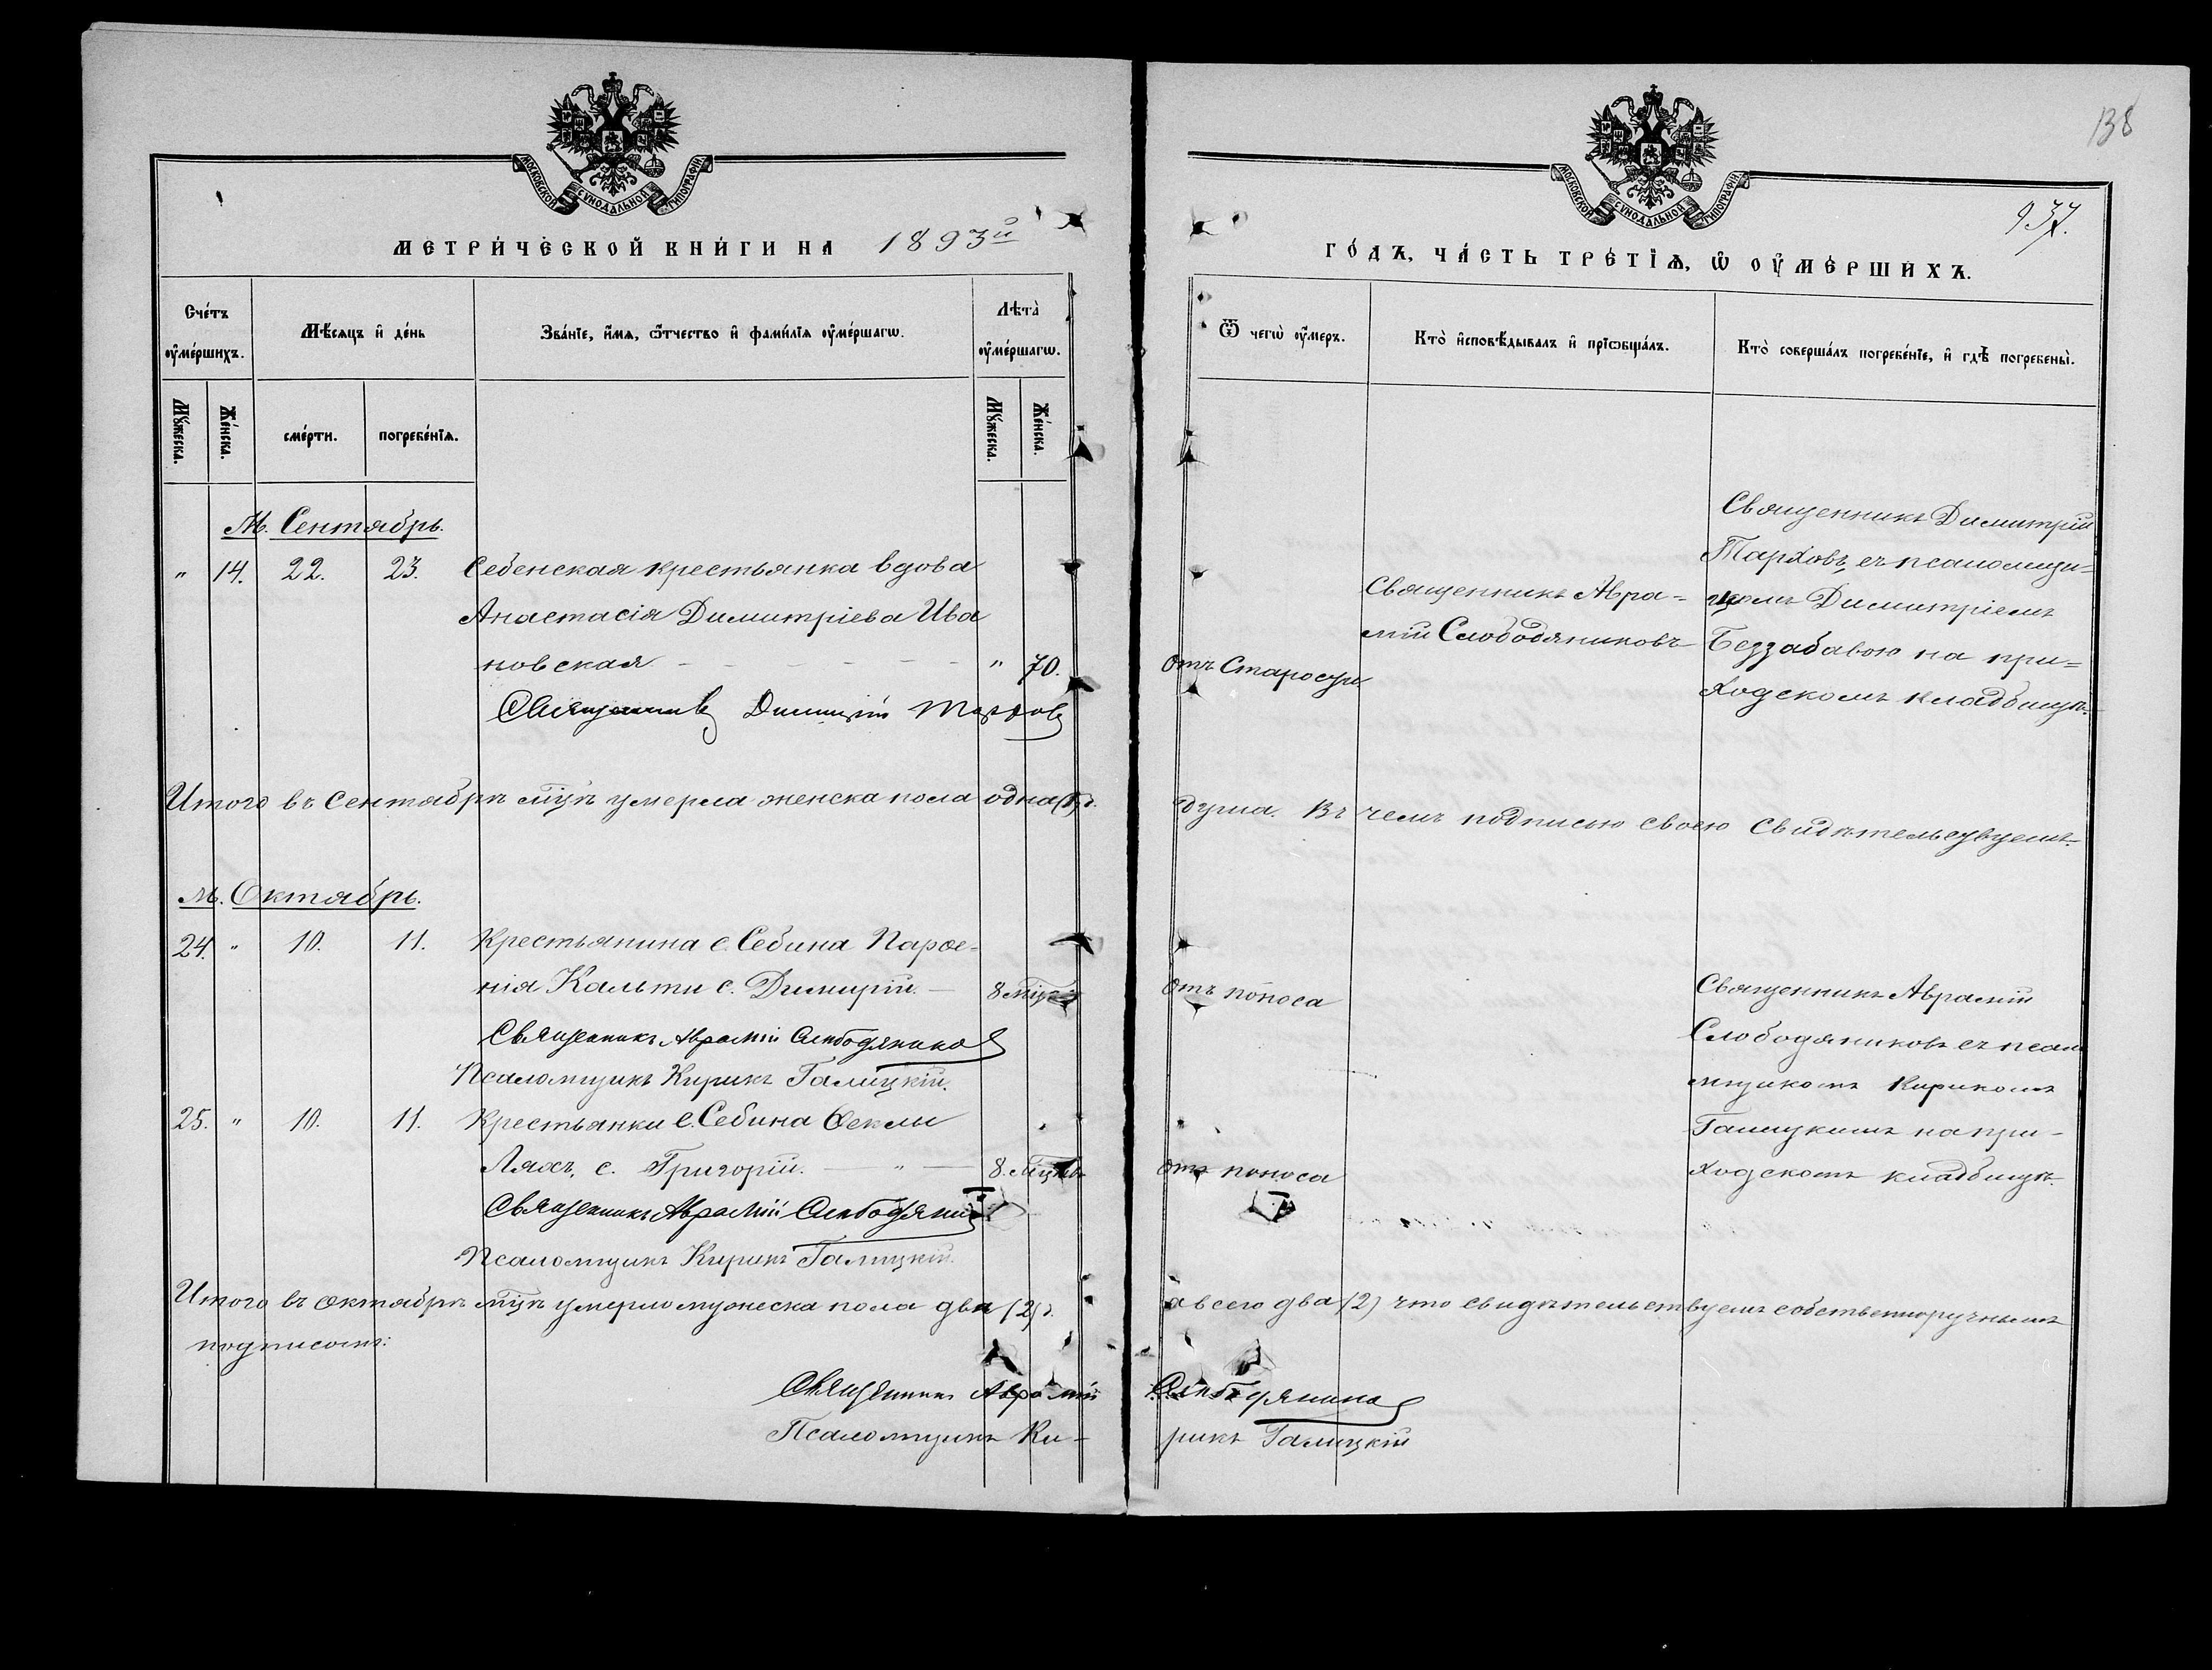 138
937.
МОСКОВСКОЙ СѴНОДАЛЬНОЙ ТИПОГРАФІИ
МЕТРИ́ЧЕСКОЙ КНИ́ГИ НА 1893й
Сче́тъ ᲂу҆ме́ршихъ.
Мѣ́сяцъ и҆ де́нь
Зва́нїе, и҆́мѧ, ѻ҆́тчество и҆ фами́лїѧ ᲂу҆ме́ршагѡ.
Лѣта̀ ᲂу҆ме́ршагѡ.
Мꙋ́жеска.
Же́нска.
сме́рти.
погребе́нїѧ.
Мꙋ́жеска.
Же́нска.
М. Сентябрь.
" 14. 22. 23. Себенская крестьянка вдова
Анастасія Димитріева Ива
новская " 70.
Священникъ Димитрій Тарховъ
Итого въ Сентябрѣ мцѣ умерла женска пола одна (1)
М. Октябрь.
24. " 10. 11. Крестьянина с. Себина Парѳе-
нія Кальти с. Димитрій. — 8 мцѣ
Священникъ Аврамій Слободяниковъ
Псаломщикъ Кирикъ Галицкій.
25. " 10. 11. Крестьянки с. Себина Ѳеклы
Ляхъ, с. Григорій. — " — 8. мцѣвъ
Священникъ Аврамій Слободяник
Псаломщикъ Кирикъ Галицкій.
Итого въ октябрѣ мцѣ умерло мужеска пола два (2)
подписомъ:
Священникъ Аврамій
Псаломщикъ Ки-
МОСКОВСКОЙ СѴНОДАЛЬНОЙ ТИПОГРАФІИ
ГО́ДЪ, ЧА́СТЬ ТРЕ́ТЇѦ, Ѡ҆ ОУ҆МЕ́РШИХЪ.
Ѿ чегѡ̀ ᲂу҆́меръ.
Кто̀ и҆сповѣ́дывалъ и҆ прїѡбща́лъ.
Кто̀ соверша́лъ погребе́нїе, и҆ гдѣ̀ погребены̀.
Священникъ Димитрій
Тарховъ, съ псаломщи-
комъ Димитріемъ
Беззабавою на при=
ходскомъ кладбищѣ.
Священникъ Авра=
мій Слободяниковъ
Отъ Старости
душа. Въ чемъ подписью своею Свидѣтельствуемъ.
Отъ поноса
Священникъ Аврамій
Слободяниковъ съ псало
мщикомъ Кирикомъ
Галицкимъ на при-
ходскомъ кладбищѣ.
Отъ поноса
а всего два (2) что свидѣтельствуемъ собственноручнымъ
Слободяников
рикъ Галицкій